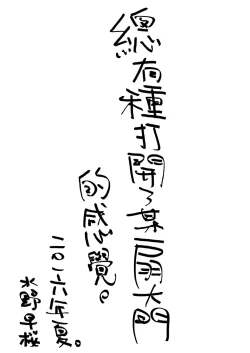 總有種打開了某扇大門
的感覺。
二〇二六年夏。
水野早桜